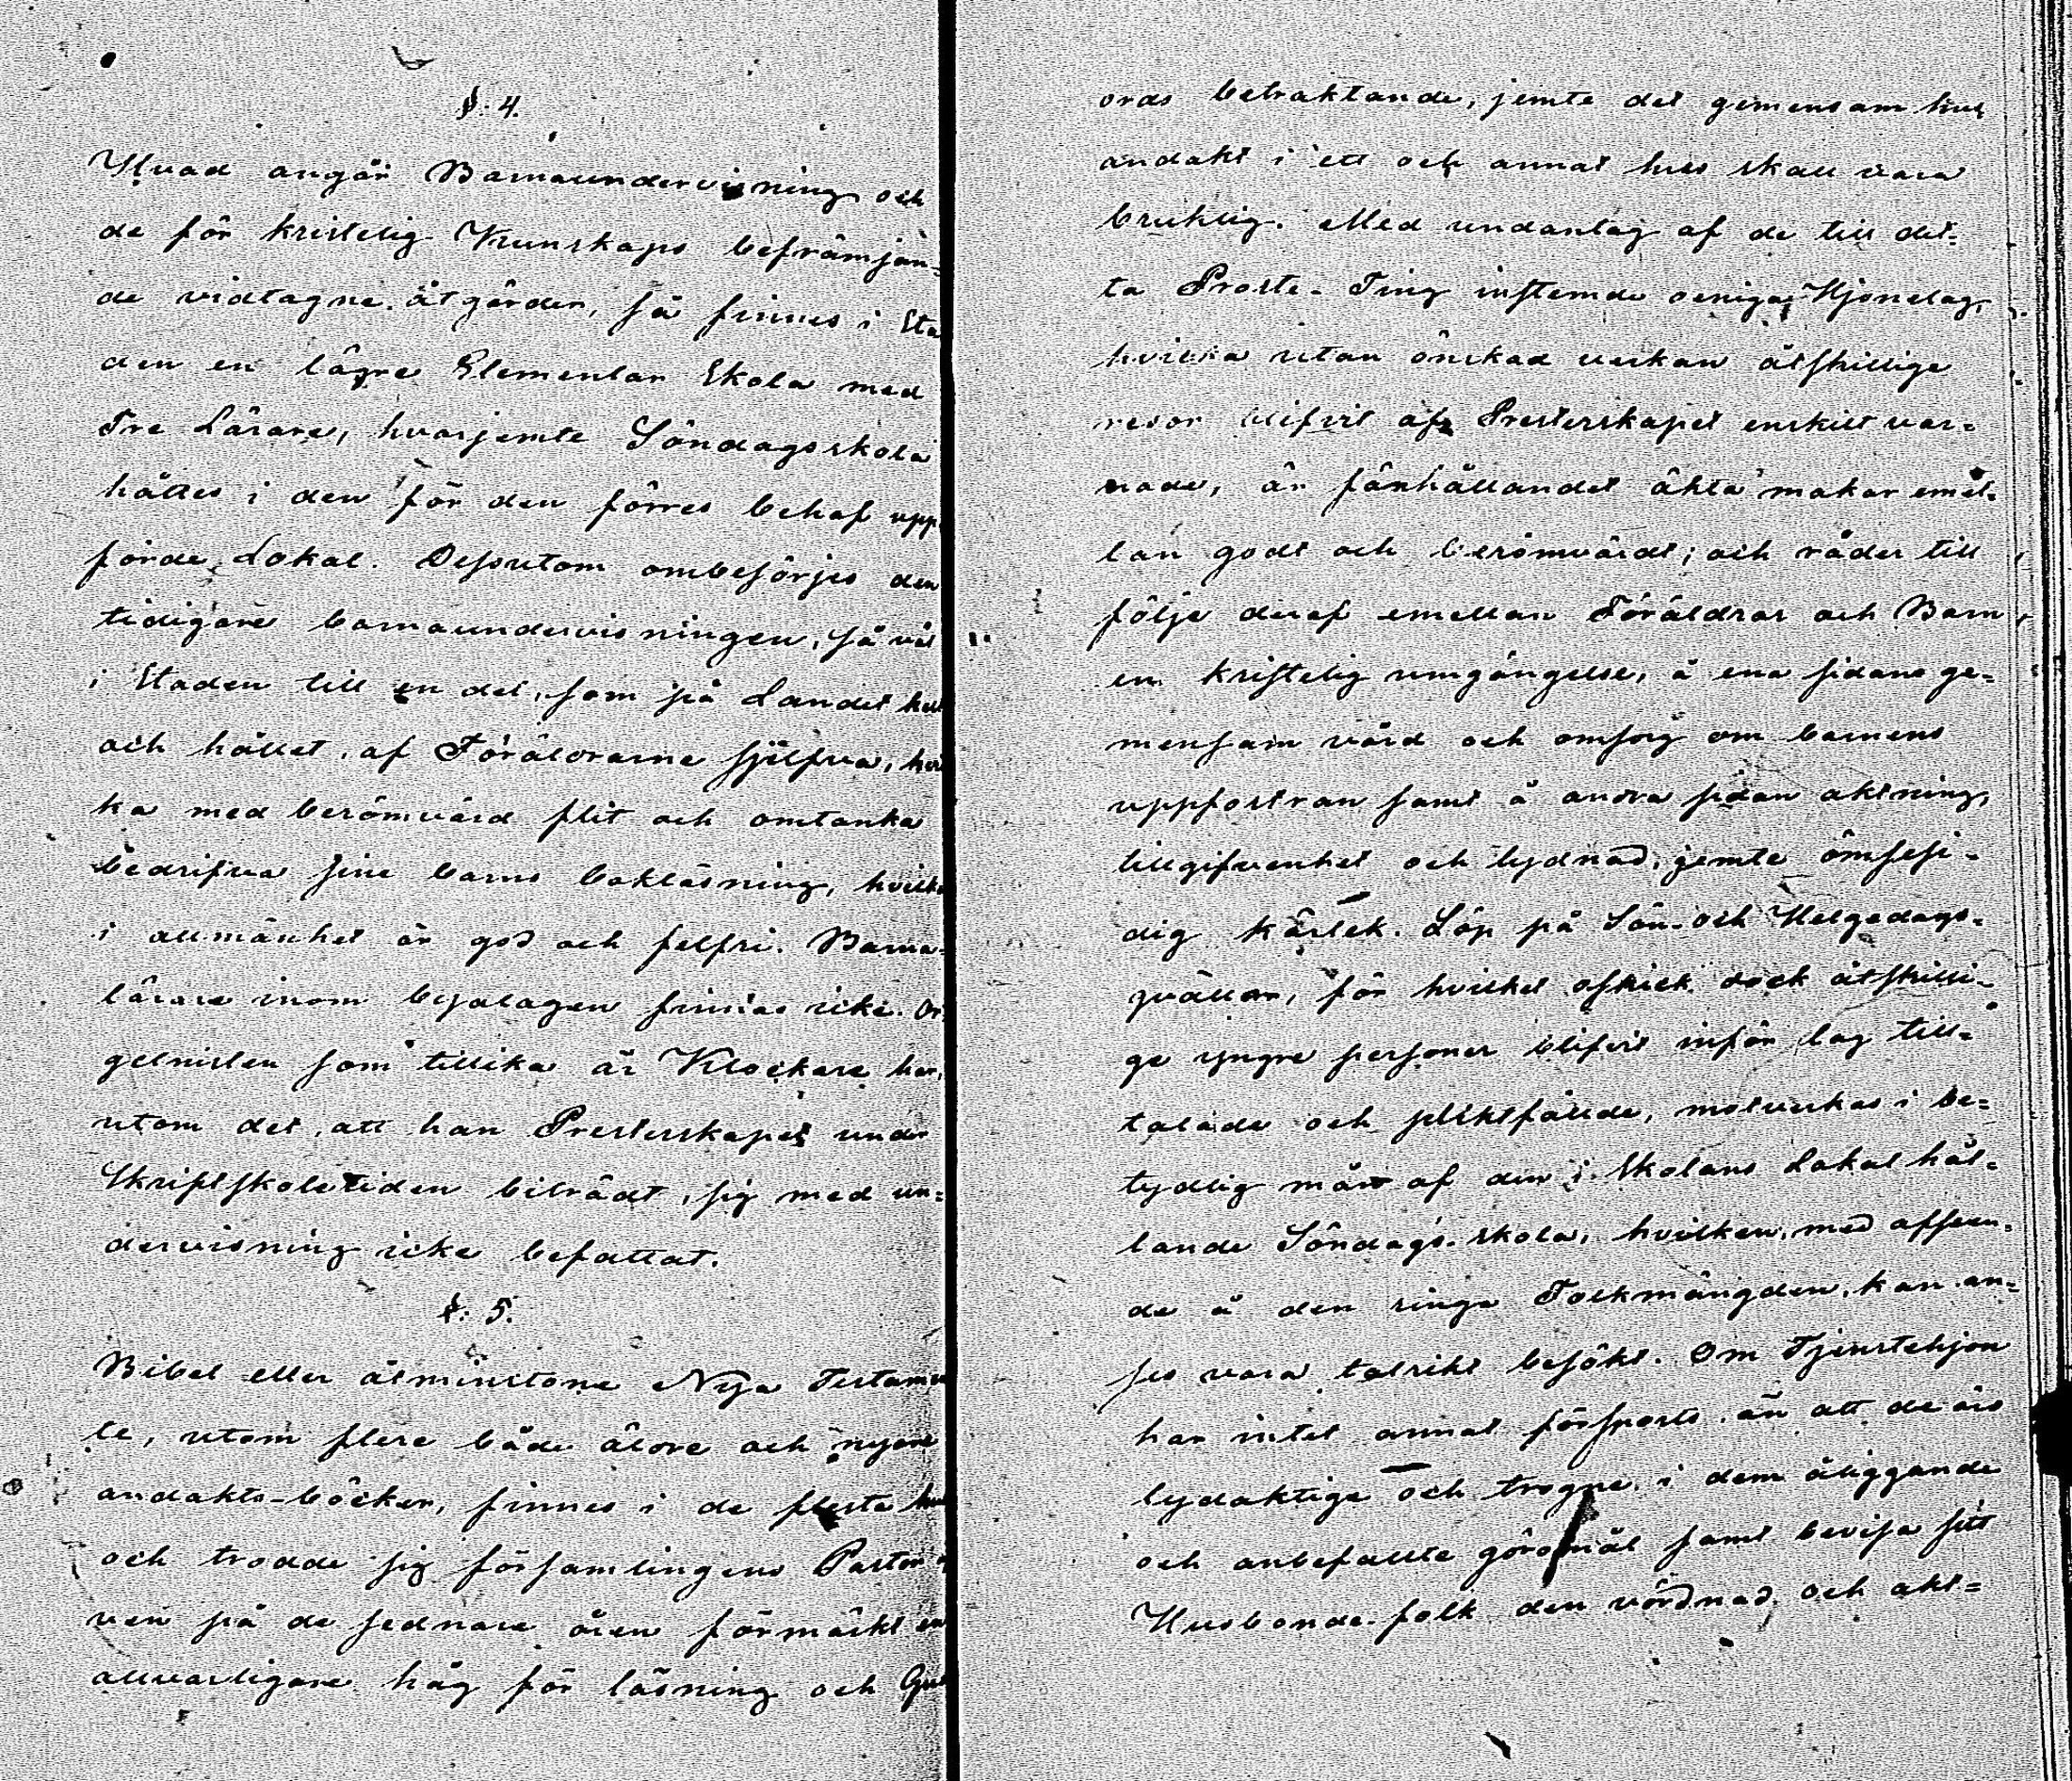 §. 4.
Hvad angår Barnaundervisning och
de för kristelig Kunskaps befrämjan-
de vidtagne åtgärder, så finnes i Sta
den en lägre Elementar Skola med
Tre Lärare, hvarjemte Söndagsskola
hålles i den för den förres behof upp
förde Lokal. Dessutom ombesörjes den
tidigare barnaundervisningen, så väl
i Staden till en del, som på Landet hel
och hållet, af Föräldrarne sjelfva, hvil
ka med berömvärd flit och omtanka
bedrifva sine barns bokläsning, hvilke
i allmänhet är god och felfri. Barna-
lärare inom byalagen finnas icke. Or
gelnisten som tillika är Klockare har,
utom det, att han Presterskapet under
Skriftskoletiden biträdt, sig med un-
dervisning icke befattat.
§. 5.
Bibel eller åtminstone Nya Testamen
te, utom flere både äldre och nyare
andakts-böcker, finnes i de flesta hus
och trodde sig församlingens Pastor ä
ven på de sednare åren förmärkt en
allvarligare håg för läsning och Gud
ords betraktande, jemte det gemensam hus
andakt i ett och annat hus skall vara
bruklig. Med undantag af de till det-
ta Proste-Ting instemde oeniga Hjonelag,
hvilka utan önskad verkan åtskillige
resor blifvit af Presterskapet enskilt var-
nade, är förhållandet äkta makar emel-
lan godt och berömvärdt; och råder till
följe deraf emellan Föräldrar och Barn
en kristelig umgängelse, å ena sidans ge-
mensam vård och omsorg om barnens
uppfostran samt å andra sidan aktning,
tillgifvenhet och lydnad, jemte ömsesi-
dig kärlek. Löp på Sön- och Helgedags-
qvällar, för hvilket oskick dock åtskilli-
ge yngre personer blifvit inför lag till-
talade och pliktfällde, motverkas i be-
tydlig mån af den i Skolans Lokal hål-
lande Söndags-skola, hvilken, med afseen-
de å den ringa Folkmängden, kan an-
ses vara talrikt besökt. Om Tjenstehjon
har intet annat försports än att de äro
lydaktige och trogne i dem åliggande
och anbefallte göromål samt bevisa sitt
Husbonde-folk den vördnad och akt-